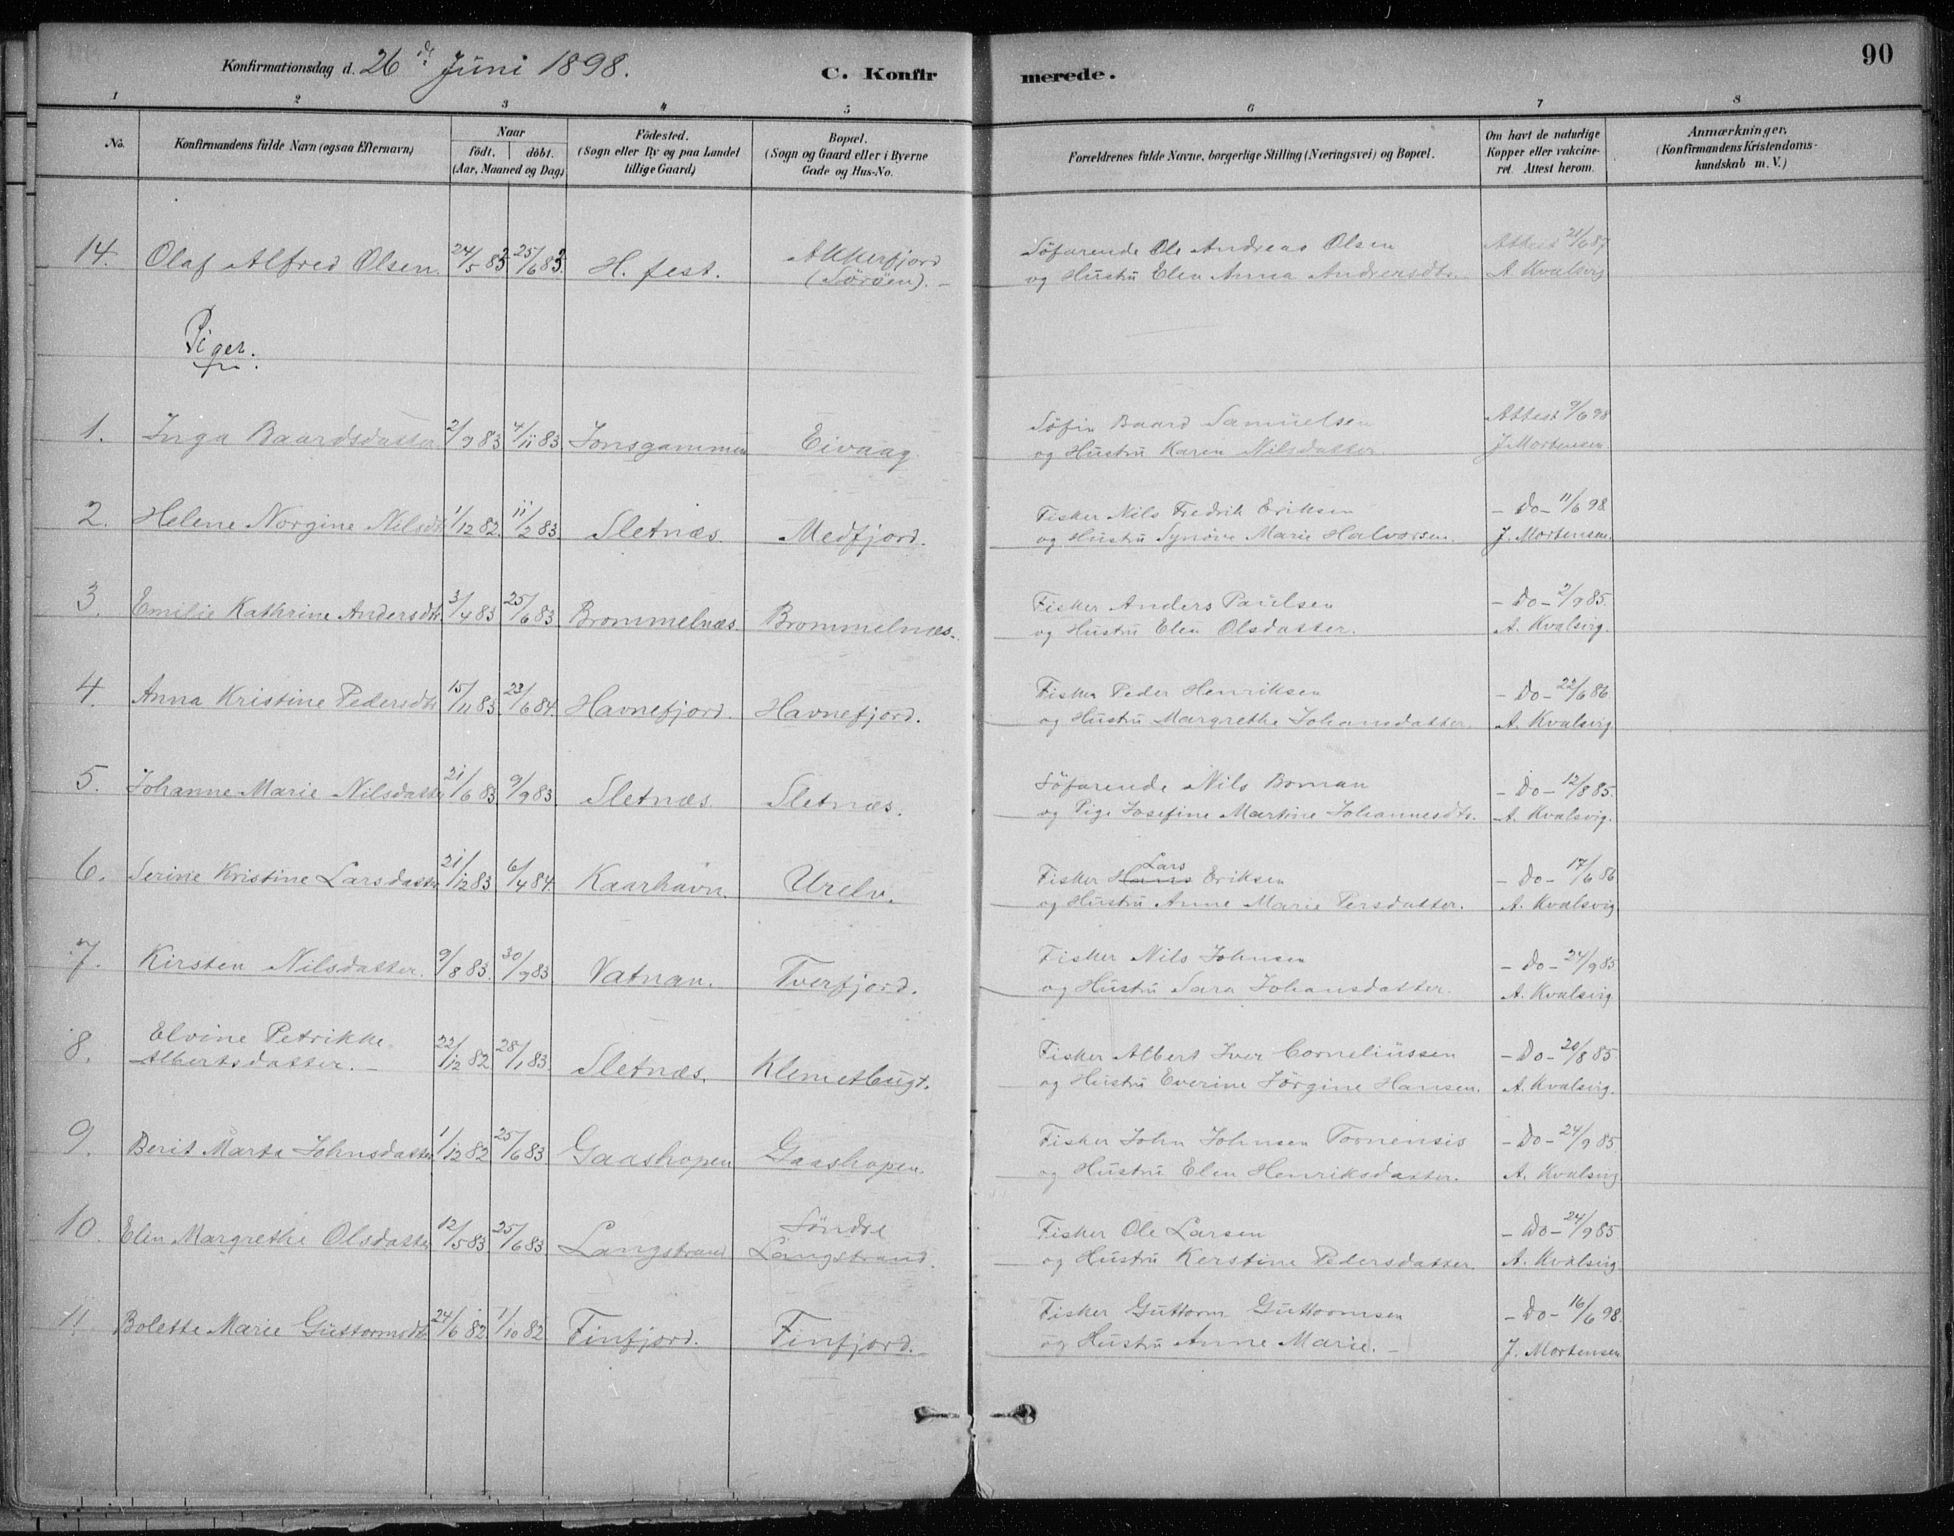 Konfirmationsdag d. 26de Juni 1898. C. Konfirmerede. 90
1 2 3 4 5 6 7 8
No. Konfirmandens fulde Navn (ogsaa Efternavn) Naar født, døbt. (Aar, Maaned og Dag) Fødested. (Sogn eller By og paa Landet tillige Gaard) Bopæl. (Sogn og Gaard eller i Byerne Gade og Hus-No. Forældrenes fulde Navne, borgerlige Stilling (Næringsvei) og Bopæl. Om havt de naturlige Kopper eller vakcineret. Attest herom. Anmærkninger. (Konfirmandens Kristendomskundskab m. V.)
14. Olaf Alfred Olsen 24/5 83 25/6 83. H. fest. Akkerfjord (Söröen). Söfarende Ole Andreas Olsen Attest 21/6 87
og Hustru Elen Anna Andersdtr. A Kvalsvig
Piger.
1. Inga Baardsdatter 2/9 83 4/11 83. Jonsgammen Eivaag. Söfin Baard Samuelsen Attest 9/6 98
og Hustru Karen Nilsdatter. J. Mortensen.
2. Helene Norgine Nilsdtr 1/12 82. 11/2 83. Sletnæs Medfjord. Fisker Nils Fredrik Eriksen - Do - 11/6 98
og Hustru Synöve Marie Halvorsen. J. Mortensen.
3. Emilie Kathrine Andersdtr 3/4 83 25/6 83. Brommelnæs. Brommelnæs. Fisker Anders Paulsen - Do - 2/9 85.
og Hustru Elen Olsdatter. A. Kvalsvig.
4. Anna Kristine Pedersdtr 15/11 83. 23/6 84. Havnefjord. Havnefjord. Fisker Peder Henriksen - Do - 22/6 86
og Hustru Margrethe Johansdatter. A. Kvalsvig
5. Johanne Marie Nilsdatter 21/6 83. 9/9 83. Sletnæs. Sletnæs. Söfarende Nils Boman - Do - 12/8 85.
og Pige Josefine Martine Johannesdtr. A. Kvalsvig.
6. Serine Kristine Larsdatter 21/12 83 6/4 84. Kaarhavn. Urelv. Fisker Hans Lars Eriksen - Do - 17/6 86
og Hustru Anne Marie Persdatter. A. Kvalsvig
7. Kirsten Nilsdatter. 9/8 83. 30/9 83 Vatnan. Tverfjord. Fisker Nils Johnsen - Do - 24/9 85
og Hustru Sara Johansdatter. A. Kvalsvig
8. Elvine Petrikke Albertsdatter. 22/12 82 28/1 83. Sletnæs. Klemetbugt. Fisker Albert Iver Corneliussen - Do - 20/8 85
og Hustru Everine Jörgine Hansen. A. Kvalsvig.
9. Berit Marta Johnsdatter 1/12 82 25/6 83 Gaashopen Gaashopen. Fisker John Johnsen Tornensis - Do - 24/9 85
og Hustru Elen Henriksdatter. A. Kvalsvig
10. Elen Margrethe Olsdatter 12/5 83 25/6 83 Langstrand Söndre Langstrand. Fisker Ole Larsen - Do - 24/9 85
og Hustru Kerstine Pedersdatter A. Kvalsvig
11. Bolette Marie Guttormsdtr 24/6 82 1/10 82 Finfjord. Finfjord. Fisker Guttorm Guttormsen - Do - 16/6 98.
og Hustru Anne Marie. J. Mortensen